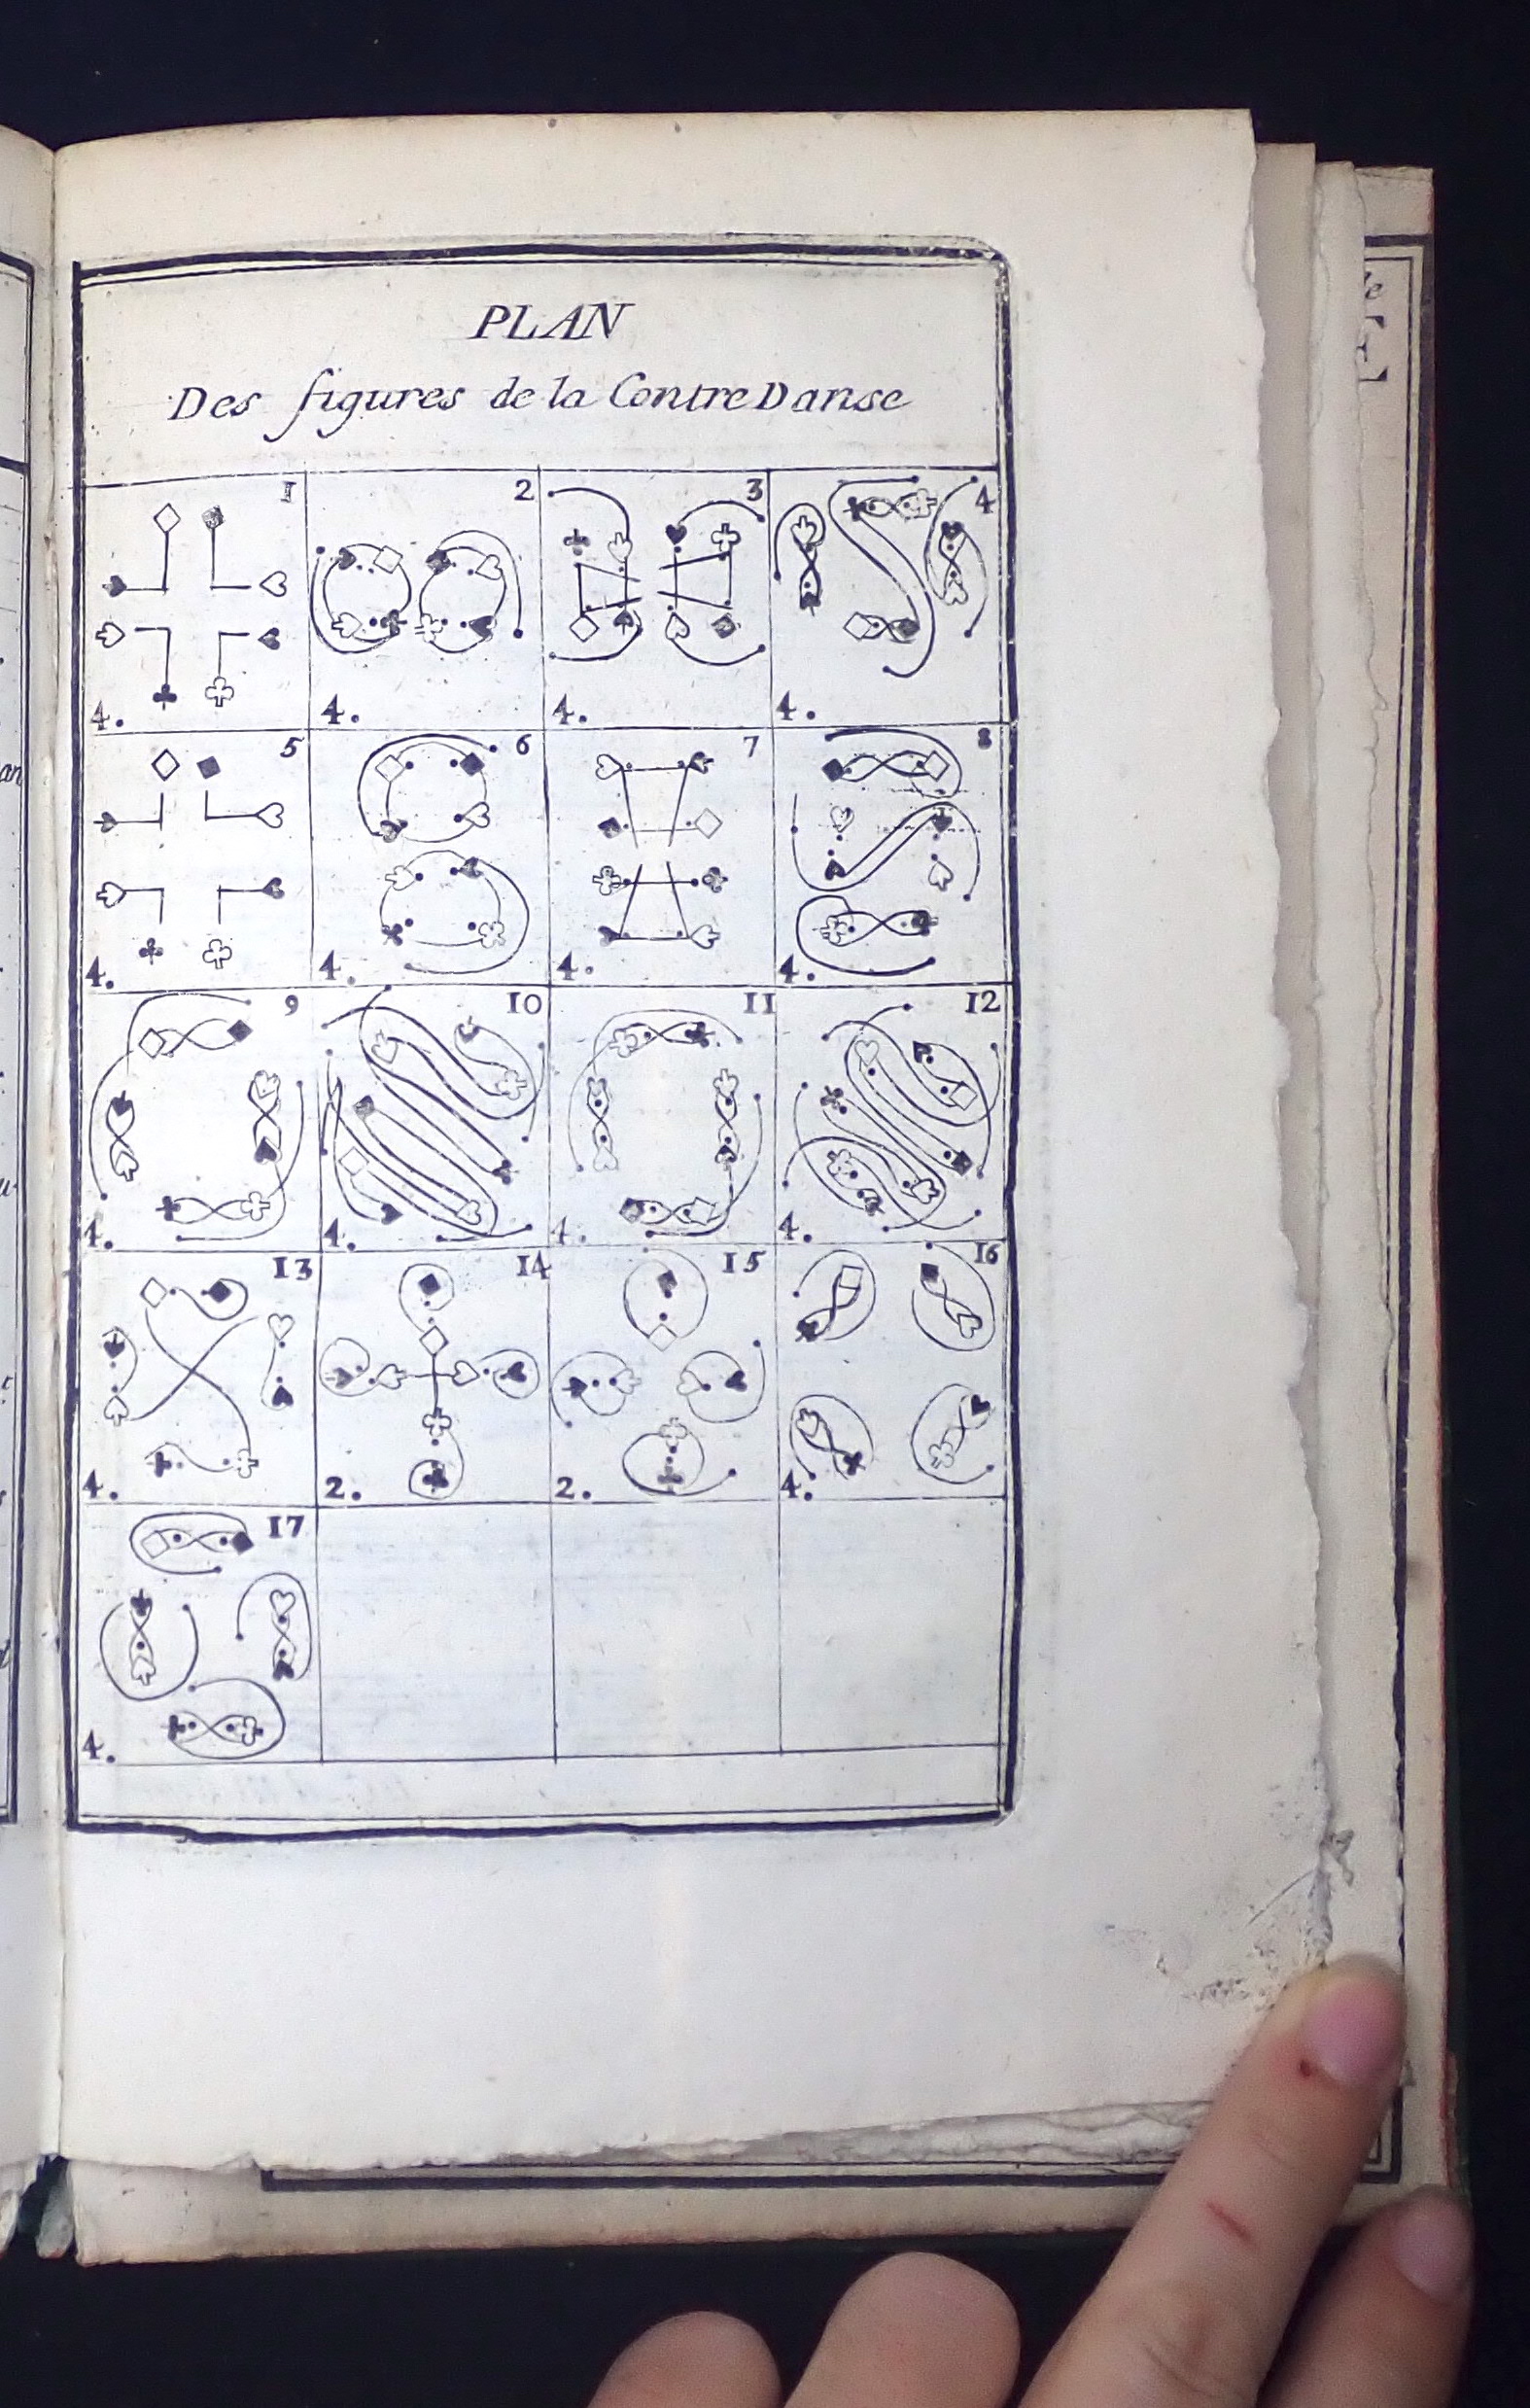 PLAN
Des figures de la Contre Danse
1 2 3 4
4. 4. 4. 4.
5 6 7 8
4. 4. 4. 4.
9 10 11 12
4. 4. 4. 4.
13 14 15 16
4. 2. 2. 4.
17
4.